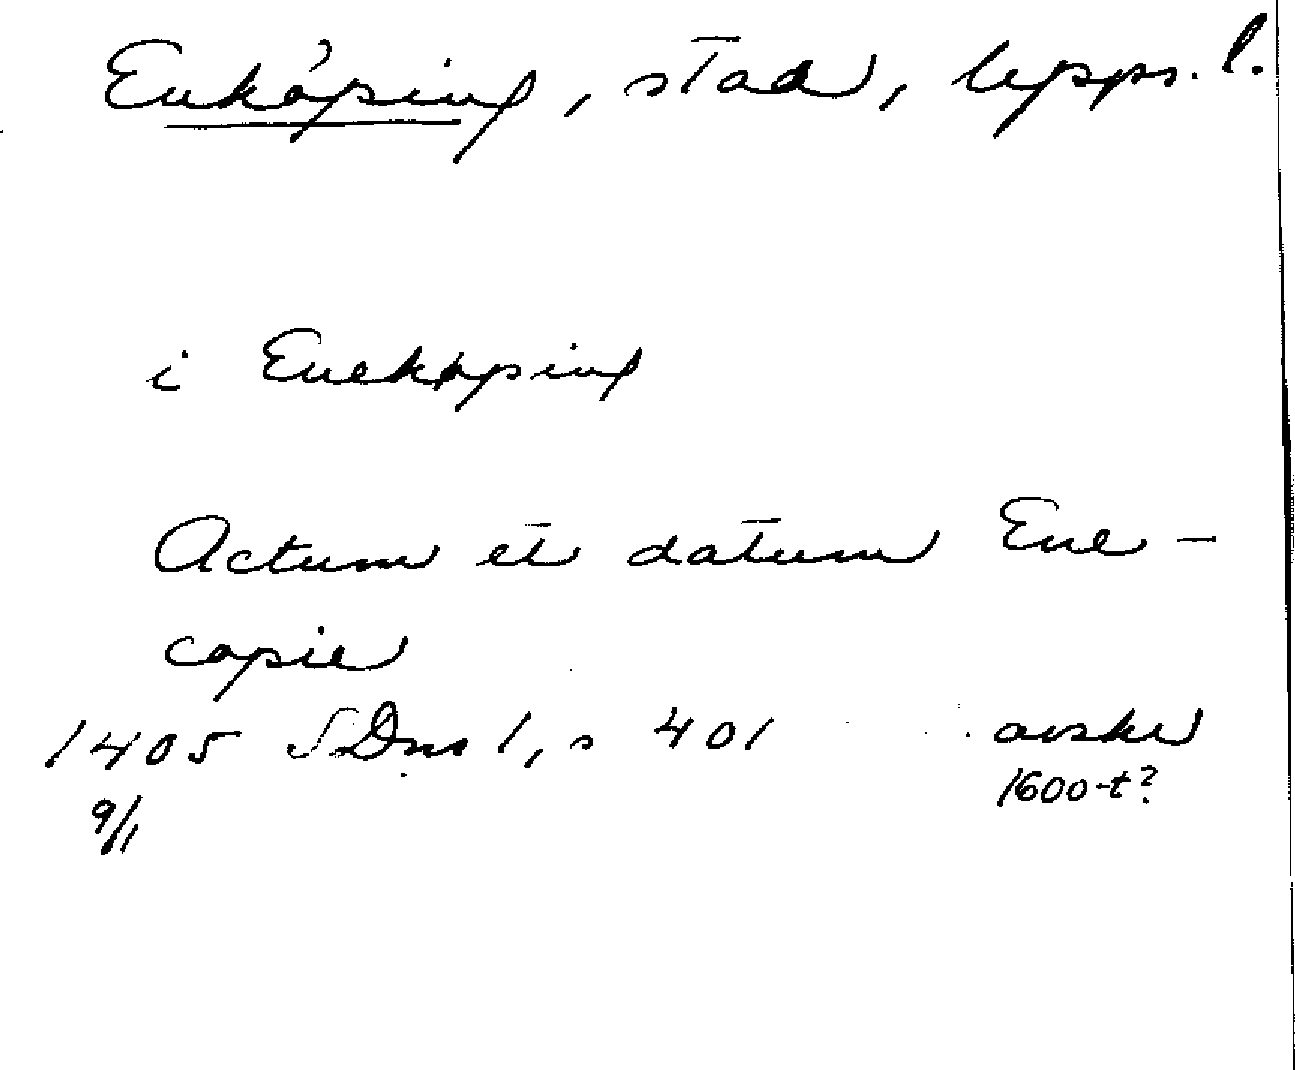 Enköping, stad, Upps. l.
i Eneköping
Actum et datum Ene-
copie
1405 SDns 1, s 401 avskr
9/1 1600-t?